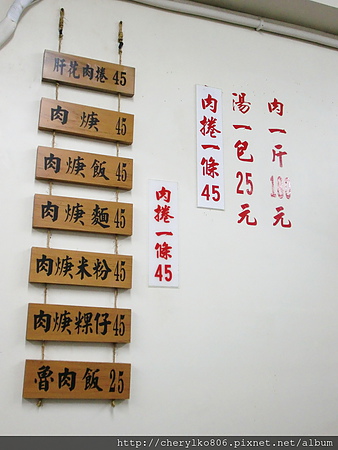 肝花肉捲 45
肉焿 45
肉焿飯 45
肉焿麵 45
肉焿米粉 45
肉焿粿仔 45
魯肉飯 25
肉捲一條 45
肉捲一條 45
湯一包 25 元
肉一斤 180 元
http://cherylko806.pixnet.net/album